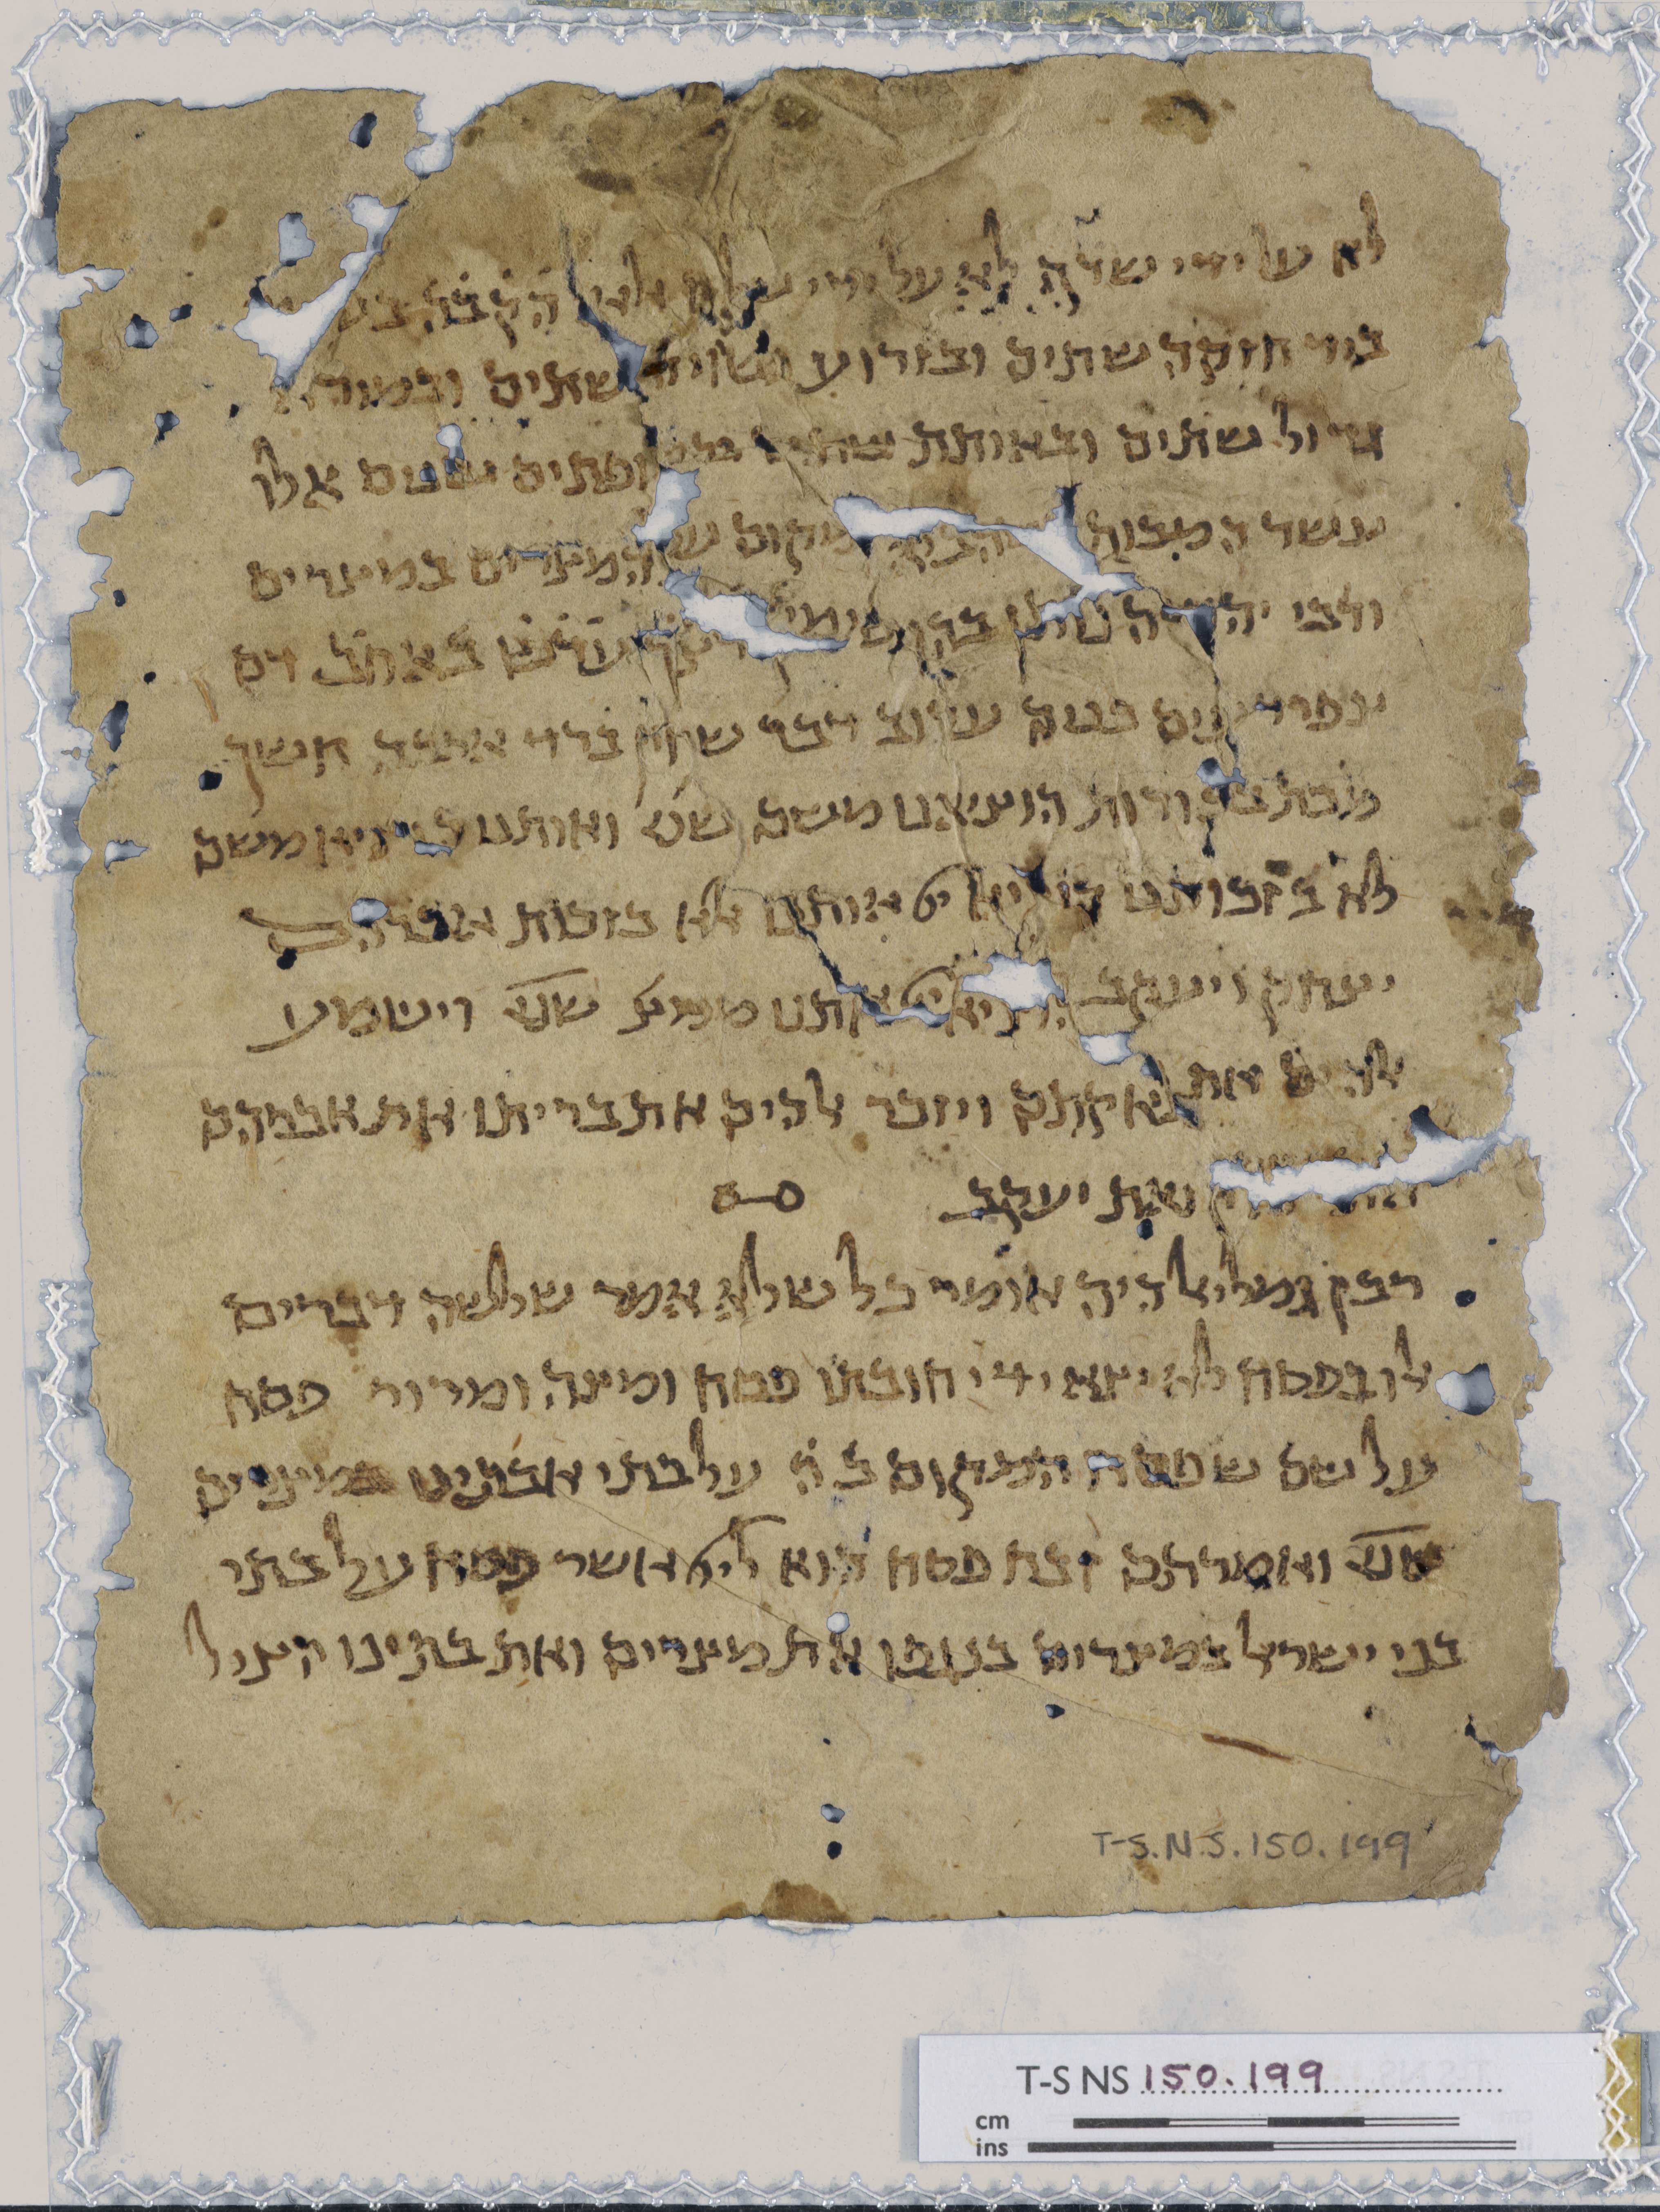 לא על ידי שרף לא על ידי שליח אלא הקבה
ביד חזקה שתים ובזרוע נטויה שתים ובמורא
גדול שתים ובאותת שתים ובמופתים שנים אלו
עשר המכות שהביא המקום על המצרים במצרים
ורבי יהודה נותן בהן סימן דצך עדש באחב דם
צפרדעים כנים ערוב דבר שחין ברד ארבה חשך
מכת בכורות הוציאנו משם שנ ואותנו הוציא משם
לא בזכותנו הוציא אותנו אלא בזכות אברהם
יצחק ויעקב הוציא אתנו ממצ שנ וישמע
אלהים את נאקתם ויזכר אלהים את בריתו את אברהם
ואת יעקב
רבן גמליאל היה אומר כל שלא אמר שלשה דברים
אלו בפסח לא יצא ידי חובתו פסח ומצה ומרור פסח
על שם שפסח המקום בה על בתי אבתינו במצרים
שנ ואמרתם זבח פסח הוא ליי אשר פסח על בתי
בני ישראל במצרים בנגפו את מצרים ואת בתינו הציל
T-S.N.S.150.199
T-S NS 150.199
cm
ins